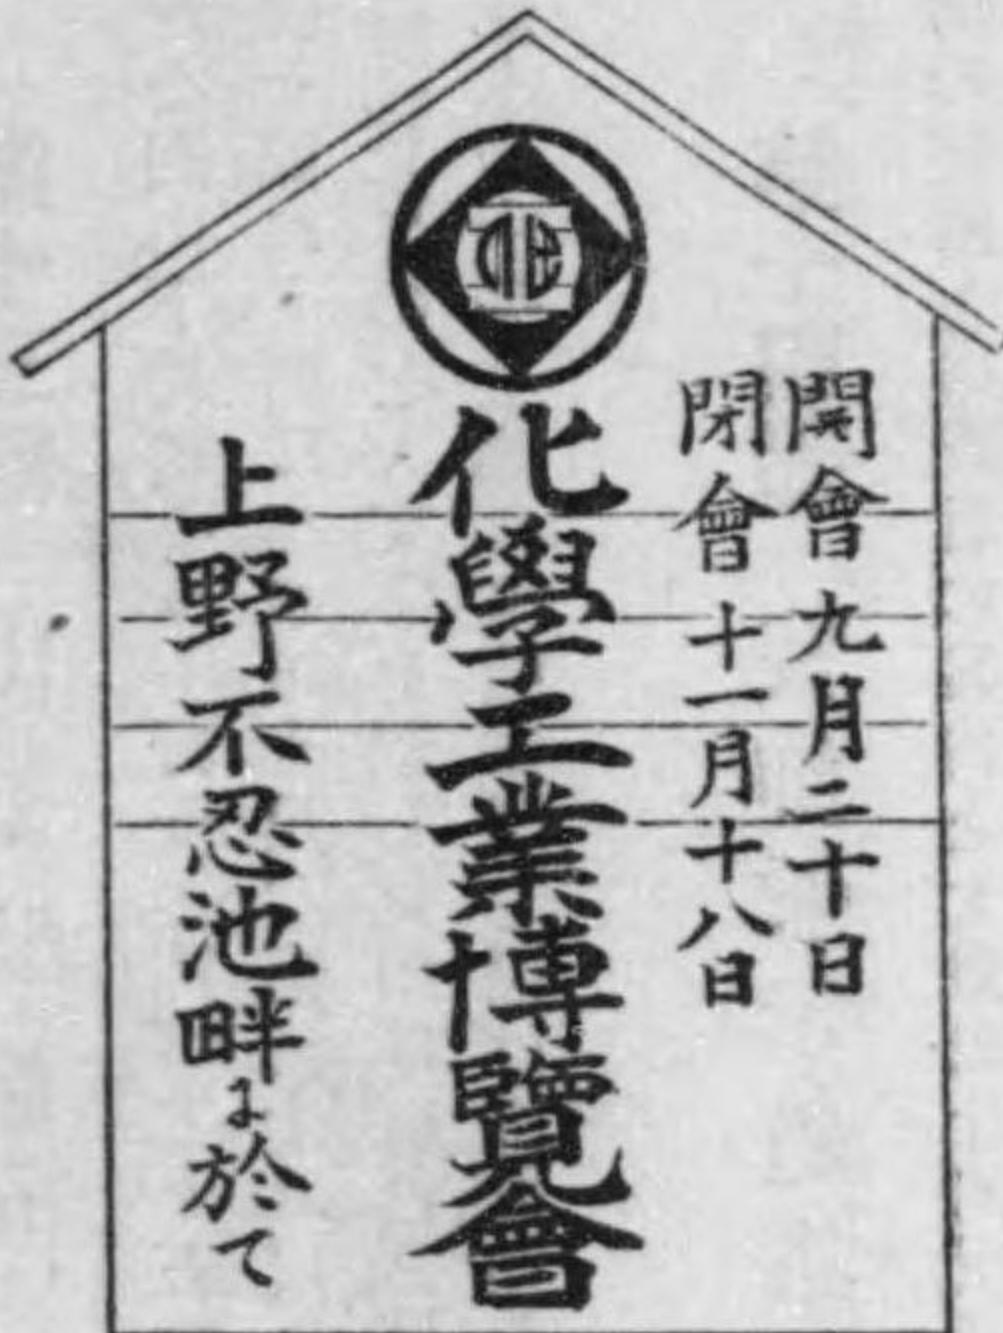 開會九月二十日
閉會十一月十八日
化學工業博覽會
上野不忍池畔に於て